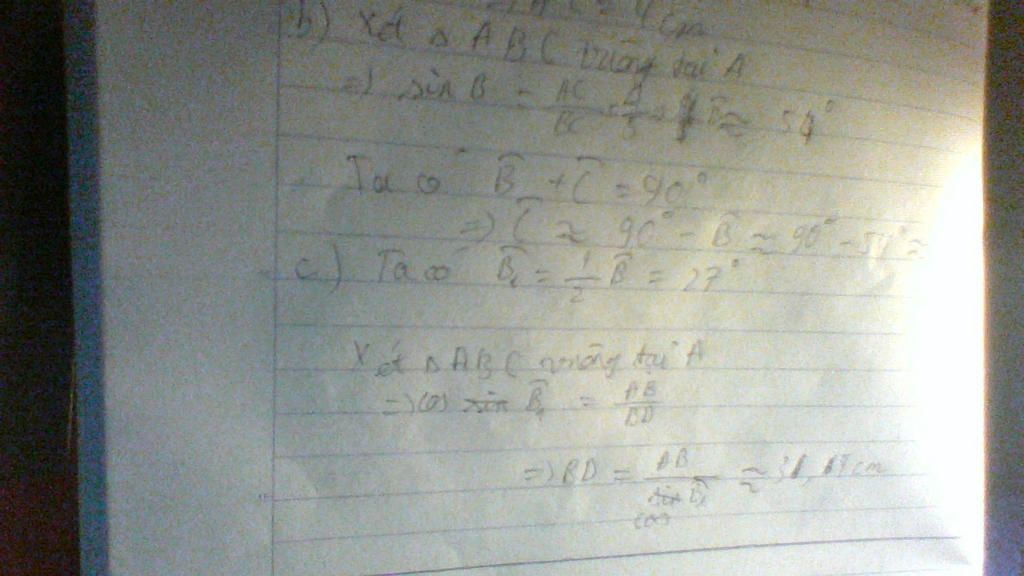 cm
b) Xét △ ABC vuông tại A
=) sin B = AC/BC = B̂ ≈ 54°
Ta có B̂ + Ĉ = 90°
=) Ĉ ≈ 90° - B̂ ≈ 90° - 54° ≈
c) Ta có B̂₁ = 1/2 B̂ = 27°
Xét △ ABC vuông tại A
=) cos B̂₁ = AB/BD
=) BD = AB/cos B̂₁ ≈ cm